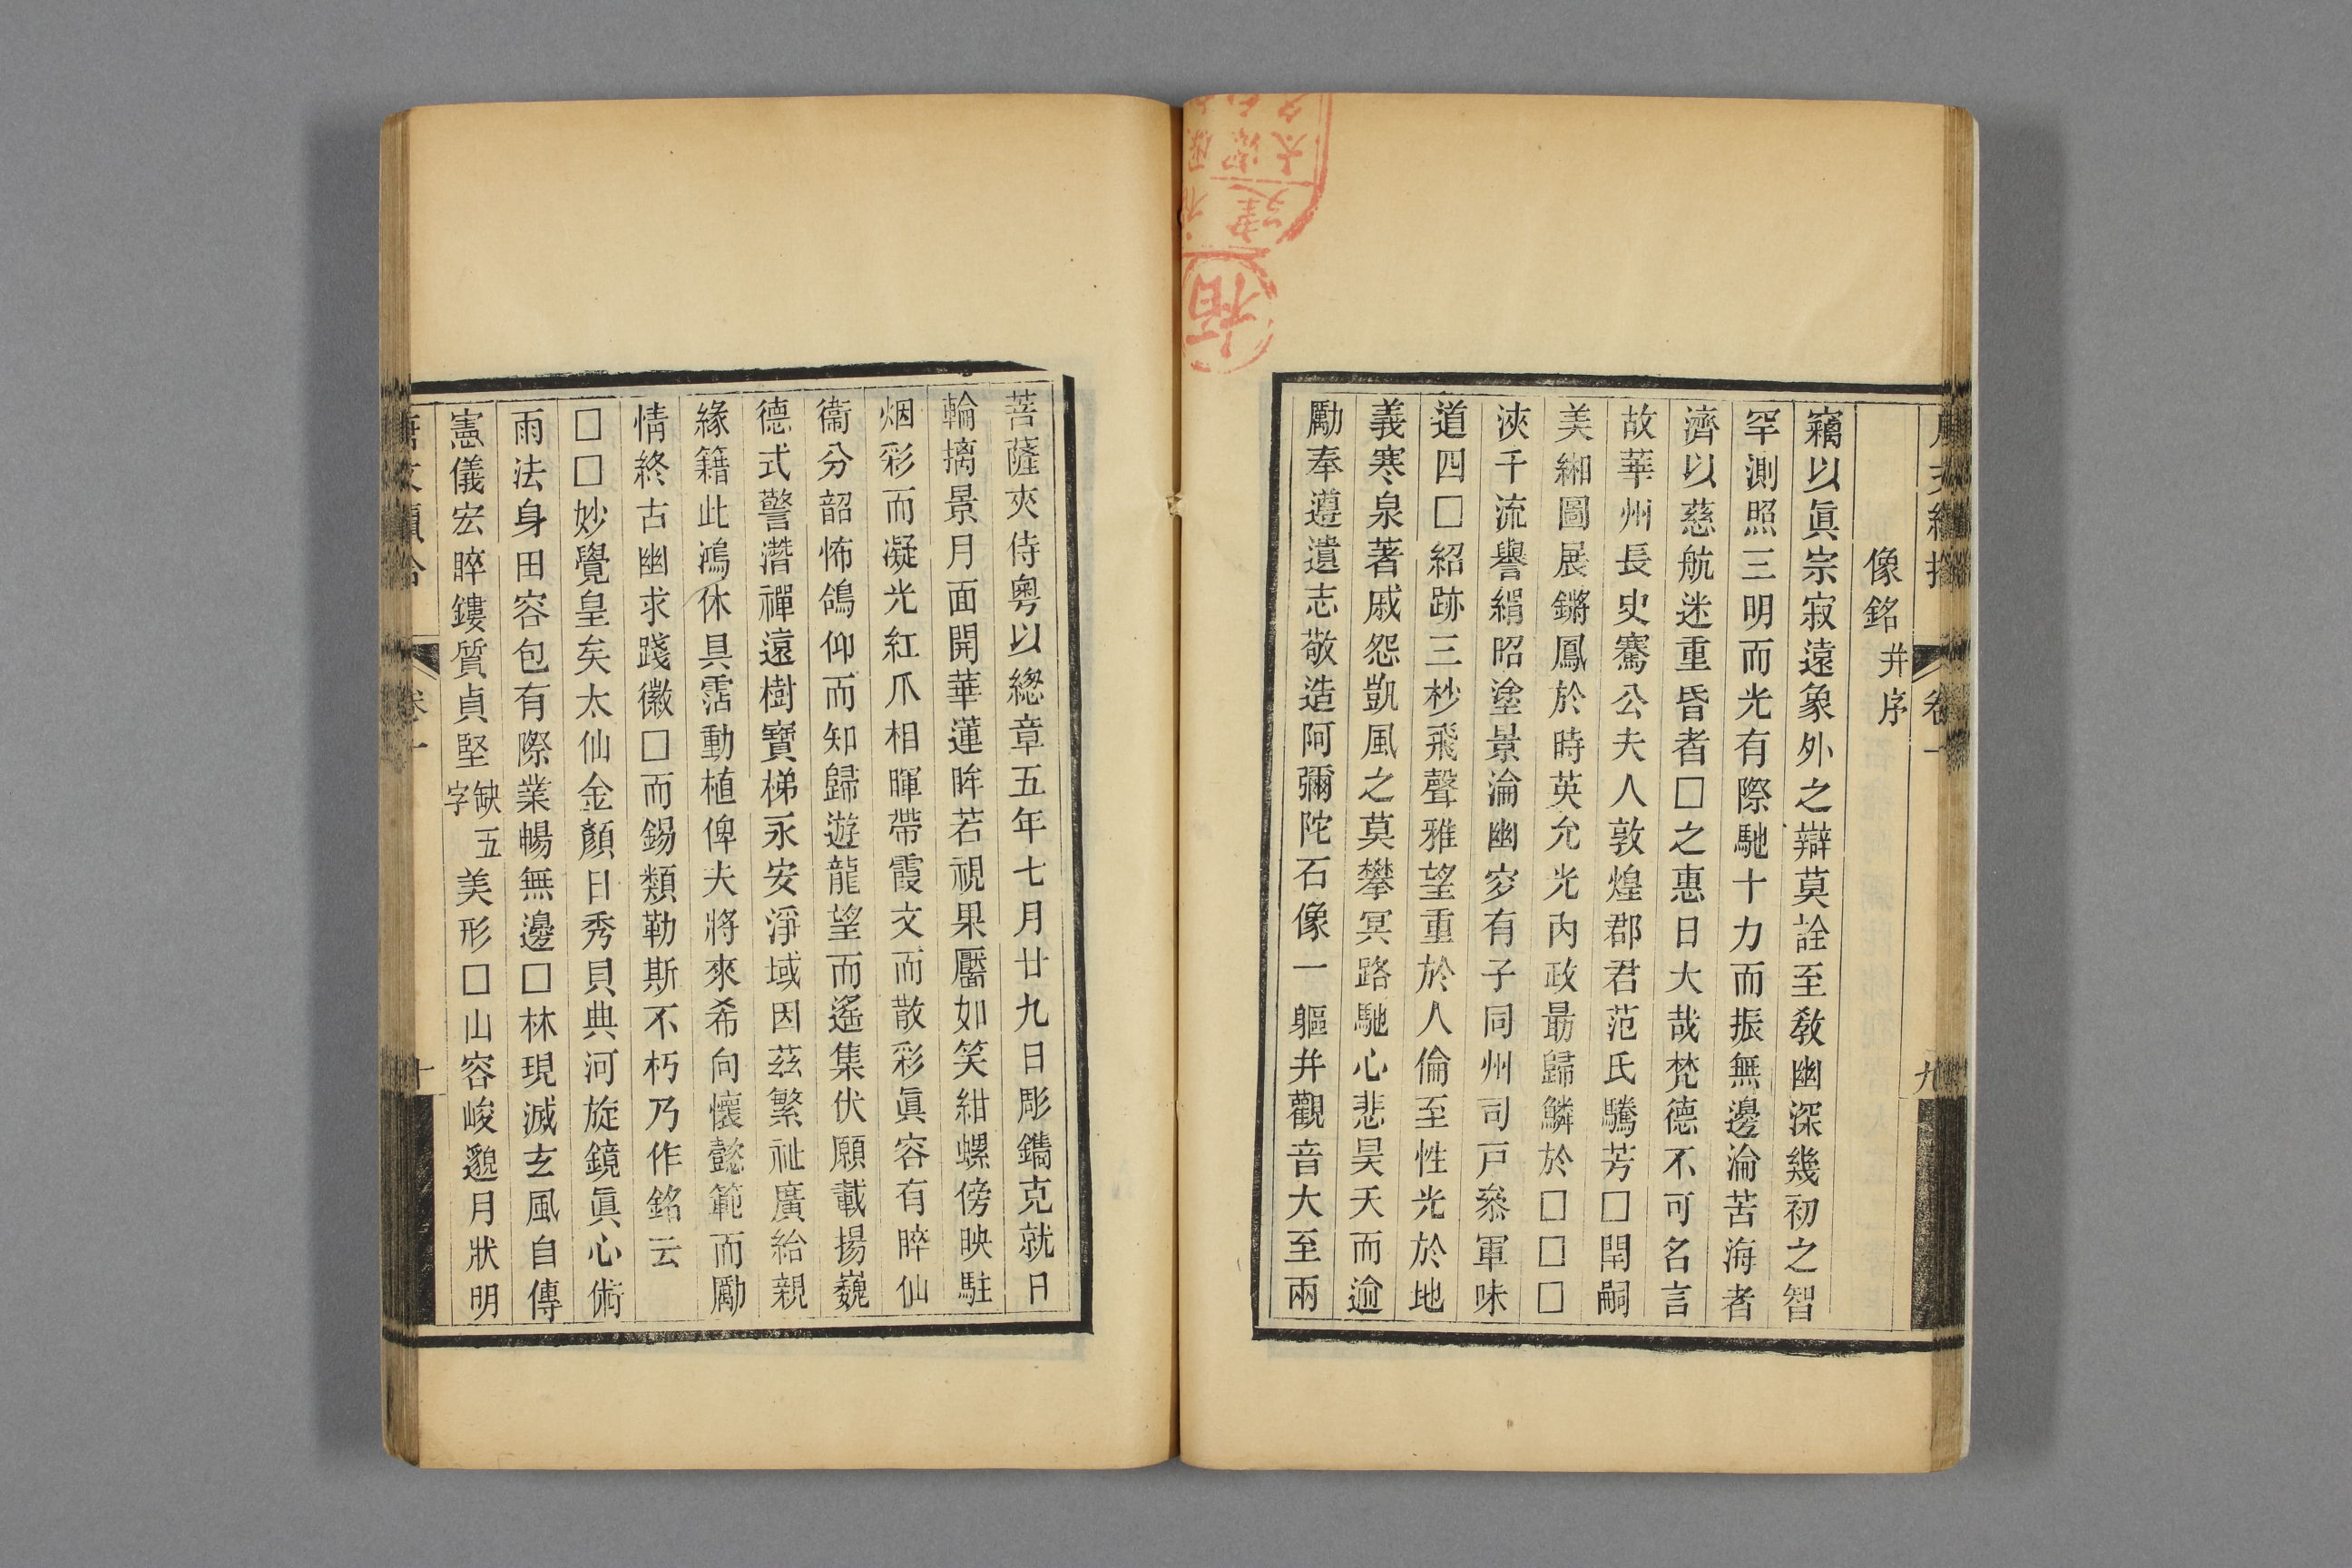 像銘并序
竊以眞宗寂遠象外之辯莫詮至敎幽深幾初之智
罕測照三明而光有際馳十力而振無邊淪苦海者
濟以慈航迷重昏者□之惠日大哉梵德不可名言
故華州長史騫公夫人敦煌郡君范氏騰芳□閈嗣
美緗圖展鏘鳳於時英允光內政最歸鱗於□□□
浹千流譽絹昭塗景淪幽穸有子同州司戸叅軍味
道四□紹跡三杪飛聲雅望重於人倫至性光於地
義寒泉著戚怨凱風之莫攀冥路馳心悲昊天而逾
勵奉遵遺志敬造阿彌陀石像一軀并觀音大至兩
菩薩夾侍粵以緫章五年七月廿九日彫鐫克就日
輪摛景月面開華蓮眸若視果靨如笑紺螺傍映駐
烟彩而凝光紅爪相暉帶霞文而散彩眞容有睟仙
衞分韶怖鴿仰而知歸遊龍望而遙集伏願載揚巍
德式警潛禪遠樹寶梯永安淨域因茲繁祉廣紿親
緣籍此鴻休具霑動植俾夫將來希向懷懿範而勵
情終古幽求踐徽□而錫類勒斯不朽乃作銘云
□□妙覺皇矣太仙金顏日秀貝典河旋鏡眞心術
雨法身田容包有際業暢無邊□林現滅玄風自傳
憲儀宏睟鏤質貞堅缺五字美形□山容峻邈月狀明
卷十
十